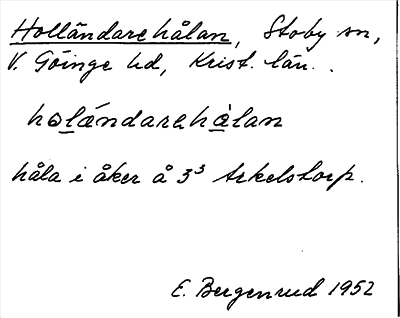 Holländarehålan, Stoby sn,
V. Göinge hd, Krist. län.
holándarehålan
håla i åker å 3³ Arkelstorp.
E. Bergenrud 1952